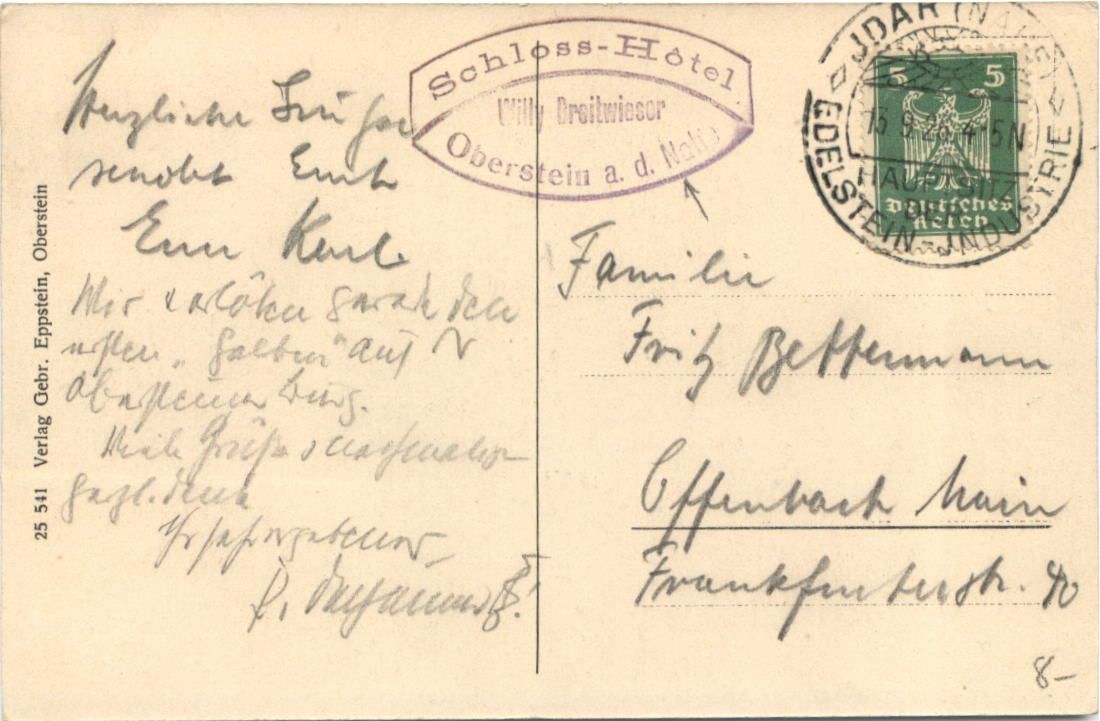 Herzliche Grüße
sendet Euch
Euer Karl.
Wir
ersten „Halben" auf
Obersteiner Burg.
Viele Grüße
Ihr sehr ergebener
25 541 Verlag Gebr. Eppstein, Oberstein
Schloss-Hôtel
Willy Breitwieser
Oberstein a. d. Nahe
JDAR (NAHE)
15.9.26. 4-5N
HAUPTSITZ
DER
EDELSTEIN-JNDUSTRIE
5 5
Deutsches
Reich
Familie
Fritz Bettermann
Offenbach Main
Frankfurterstr. 40
8-